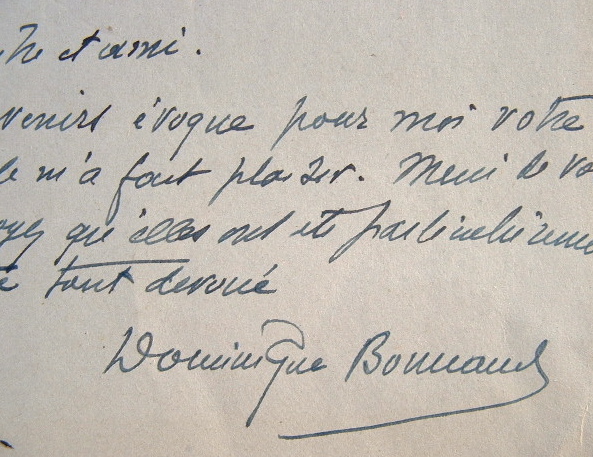 et ami.
venirs évoque pour moi votre
le m'a fait plaisir. Merci de vo
oyez qu'elles ont été particulièreme
tout dévoué
Dominique Bonnaud